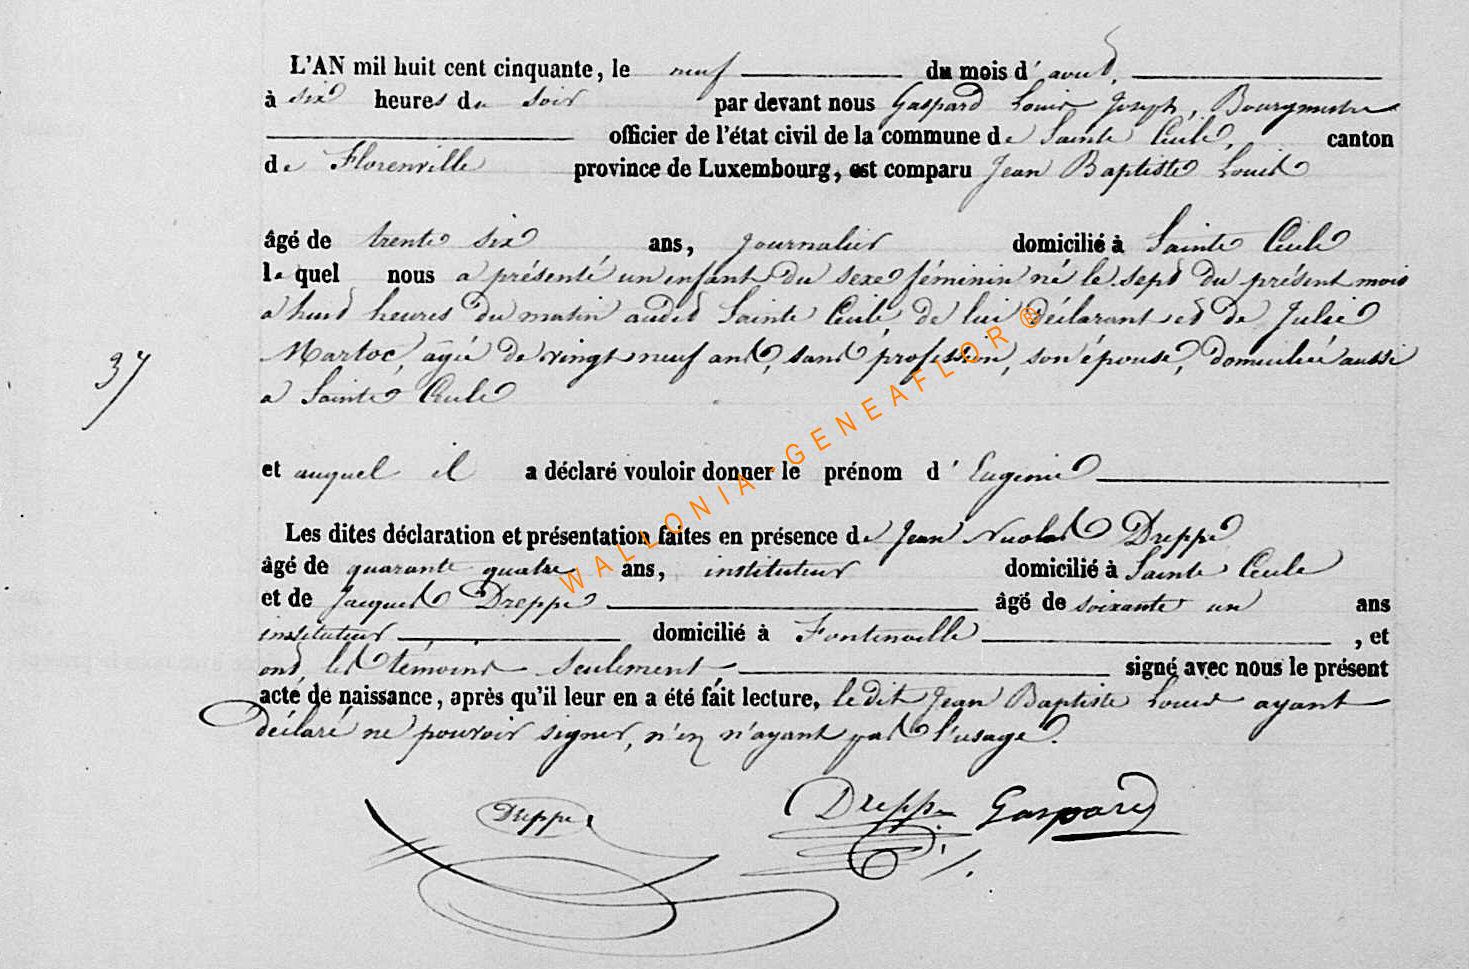 L'AN mil huit cent cinquante, le neuf du mois d'avril,
à six heures du soir par devant nous Gaspard Louis Joseph, Bourgmestre
officier de l'état civil de la commune de Sainte Cécile, canton
de Florenville province de Luxembourg, est comparu Jean Baptiste Louis
âgé de trente six ans, journalier domicilié à Sainte Cécile
lequel nous a présenté un enfant du sexe féminin né le sept du présent mois
a huit heures du matin audit Sainte Cécile, de lui déclarant et de Julie
37
Martoc, agée de vingt neuf ans, sans profession, son épouse, domiciliée aussi
a Sainte Cécile
et auquel il a déclaré vouloir donner le prénom d' Eugenie
Les dites déclaration et présentation faites en présence de Jean Nicolas Dreppe
âgé de quarante quatre ans, instituteur domicilié à Sainte Cécile
et de Jacques Dreppe âgé de soixante un ans
instituteur domicilié à Fontenoille, et
ont, les témoins seulement signé avec nous le présent
acte de naissance, après qu'il leur en a été fait lecture, le dit Jean Baptiste Louis ayant
déclaré ne pouvoir signer, n'en n'ayant pas l'usage.
Dreppe Dreppe Gaspard
WALLONIA-GENEAFLOR®